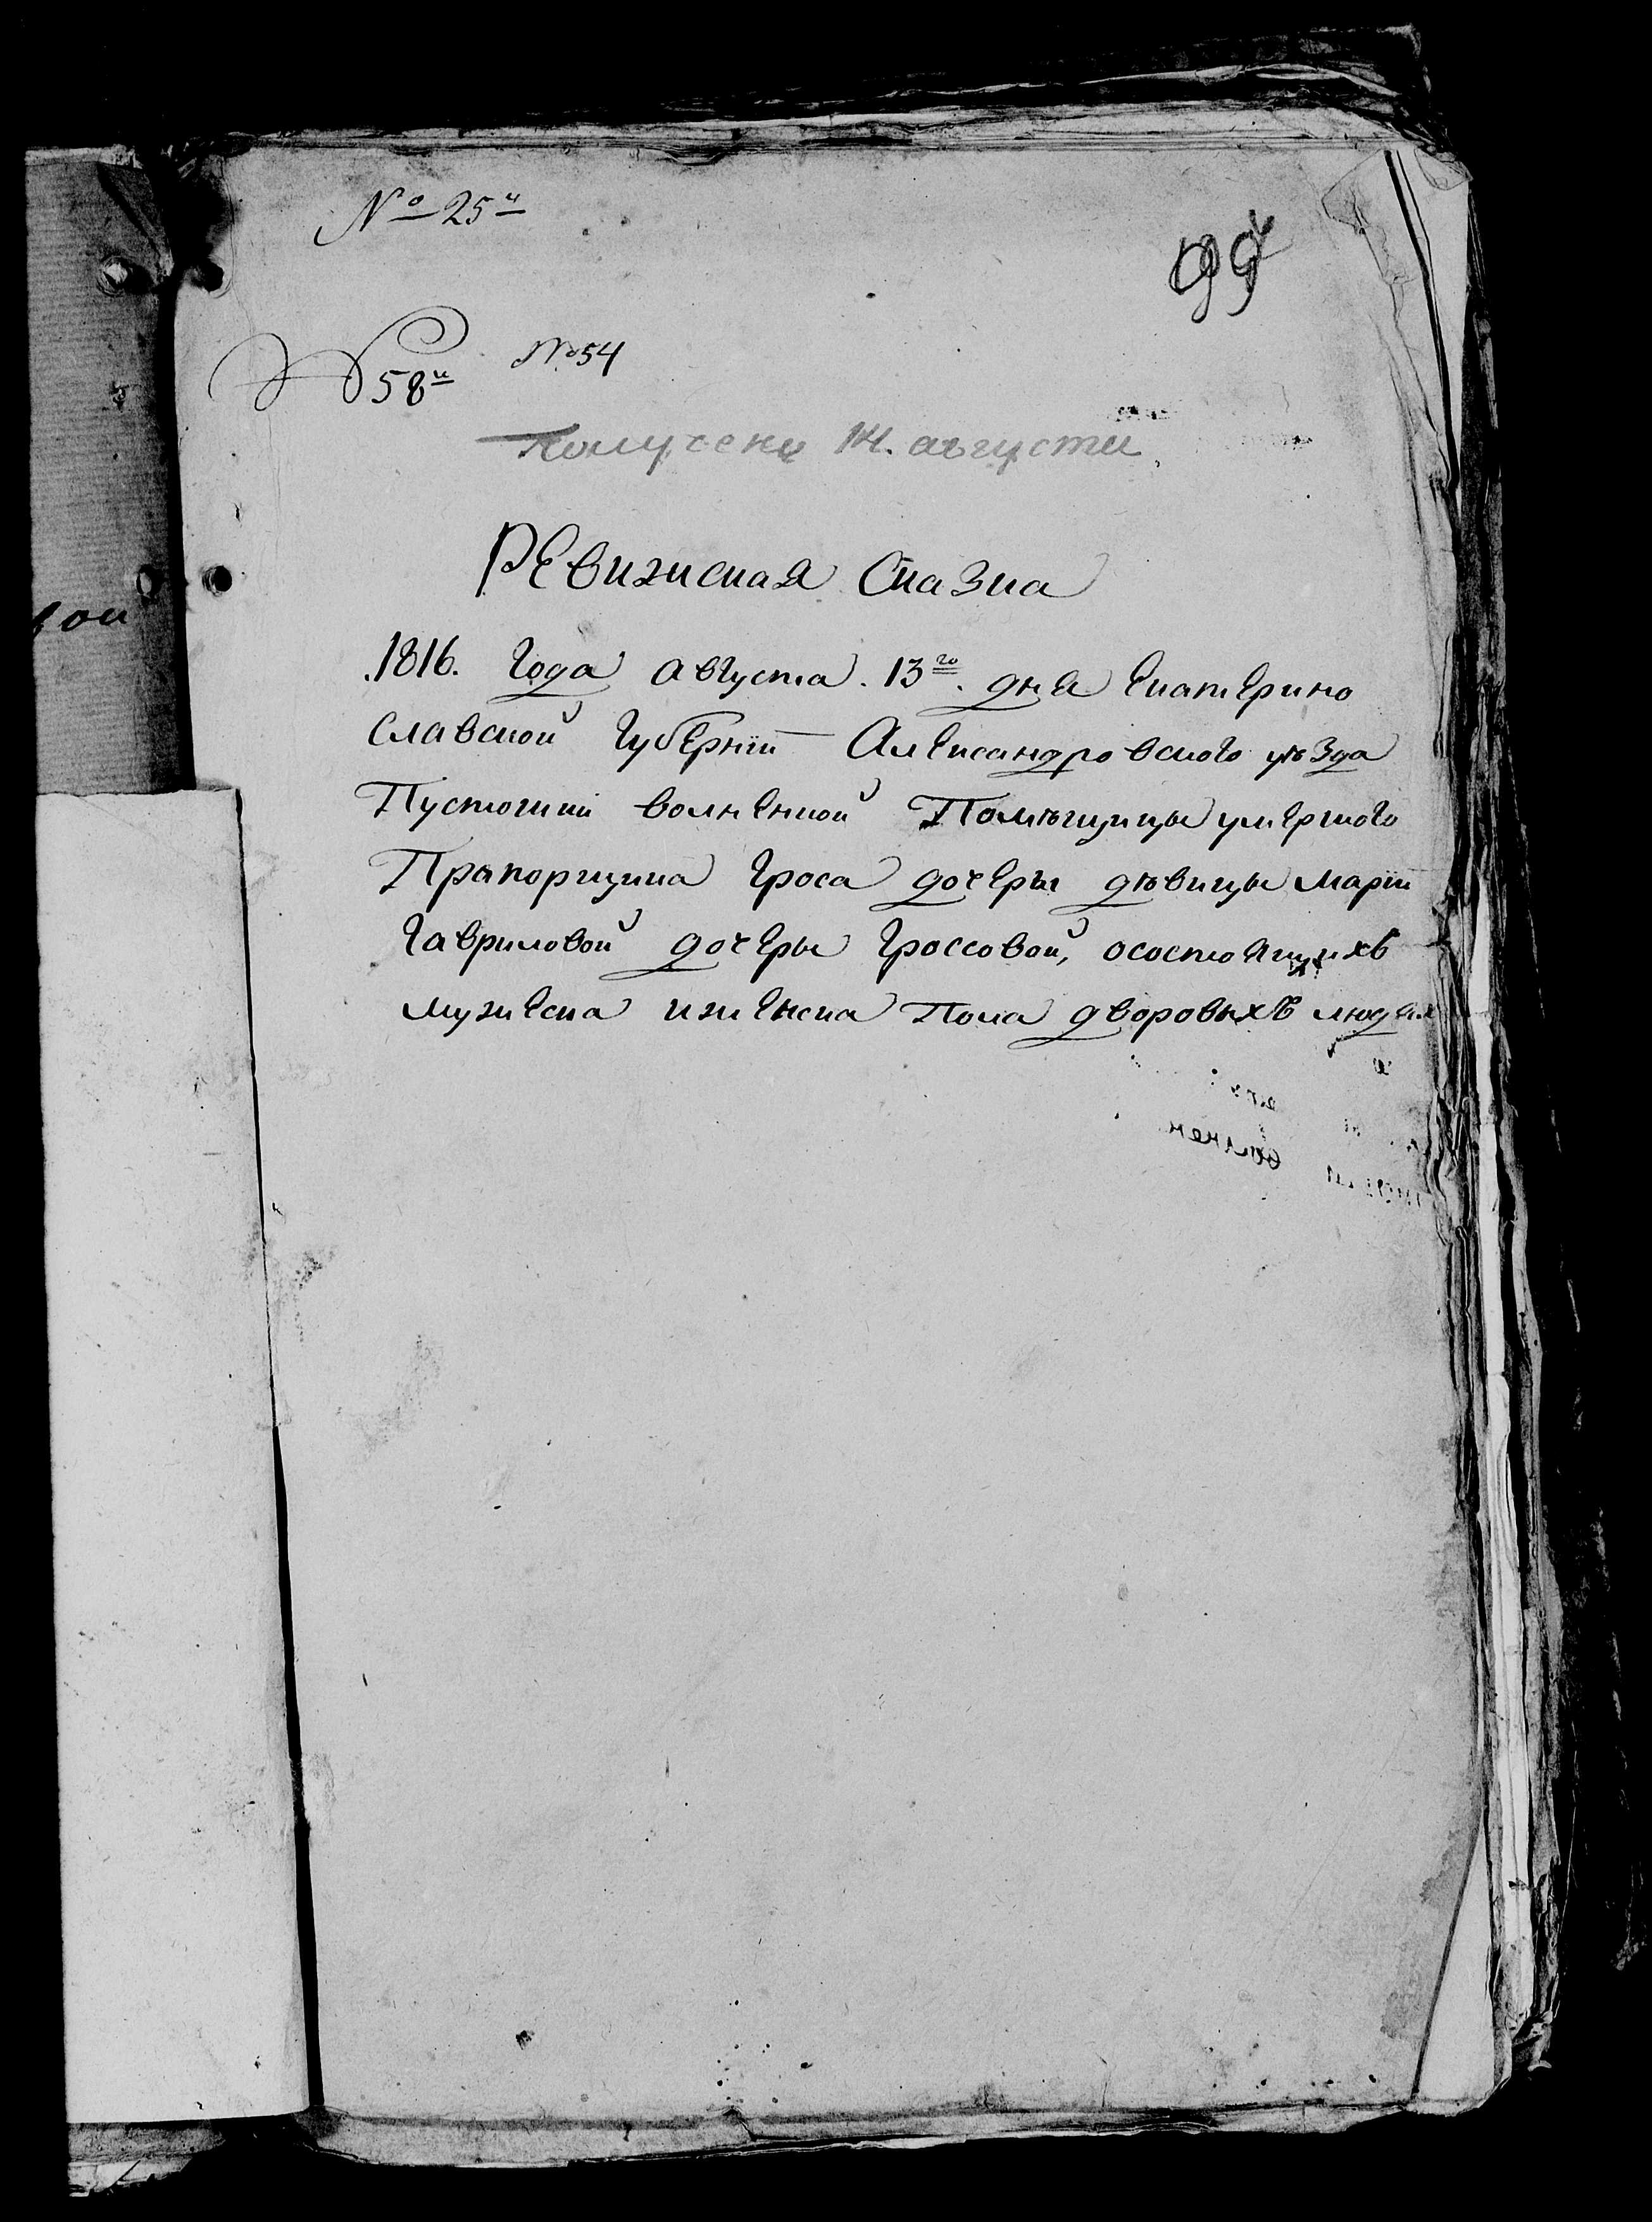 № 25й
99
№ 54
58й
Получено 14. августа
Ревижская Сказка
1816. Года августа. 13го. дня Екатерино
славской Губерніи Александровского уѣзда
Пустошки волненкой Помѣщицы умершого
Прапорщика Гроса дочеры дѣвицы Маріи
Гавриловой дочеры Гроссовой, осостоящихъ
мужеска иженска Пола дворовыхъ людях